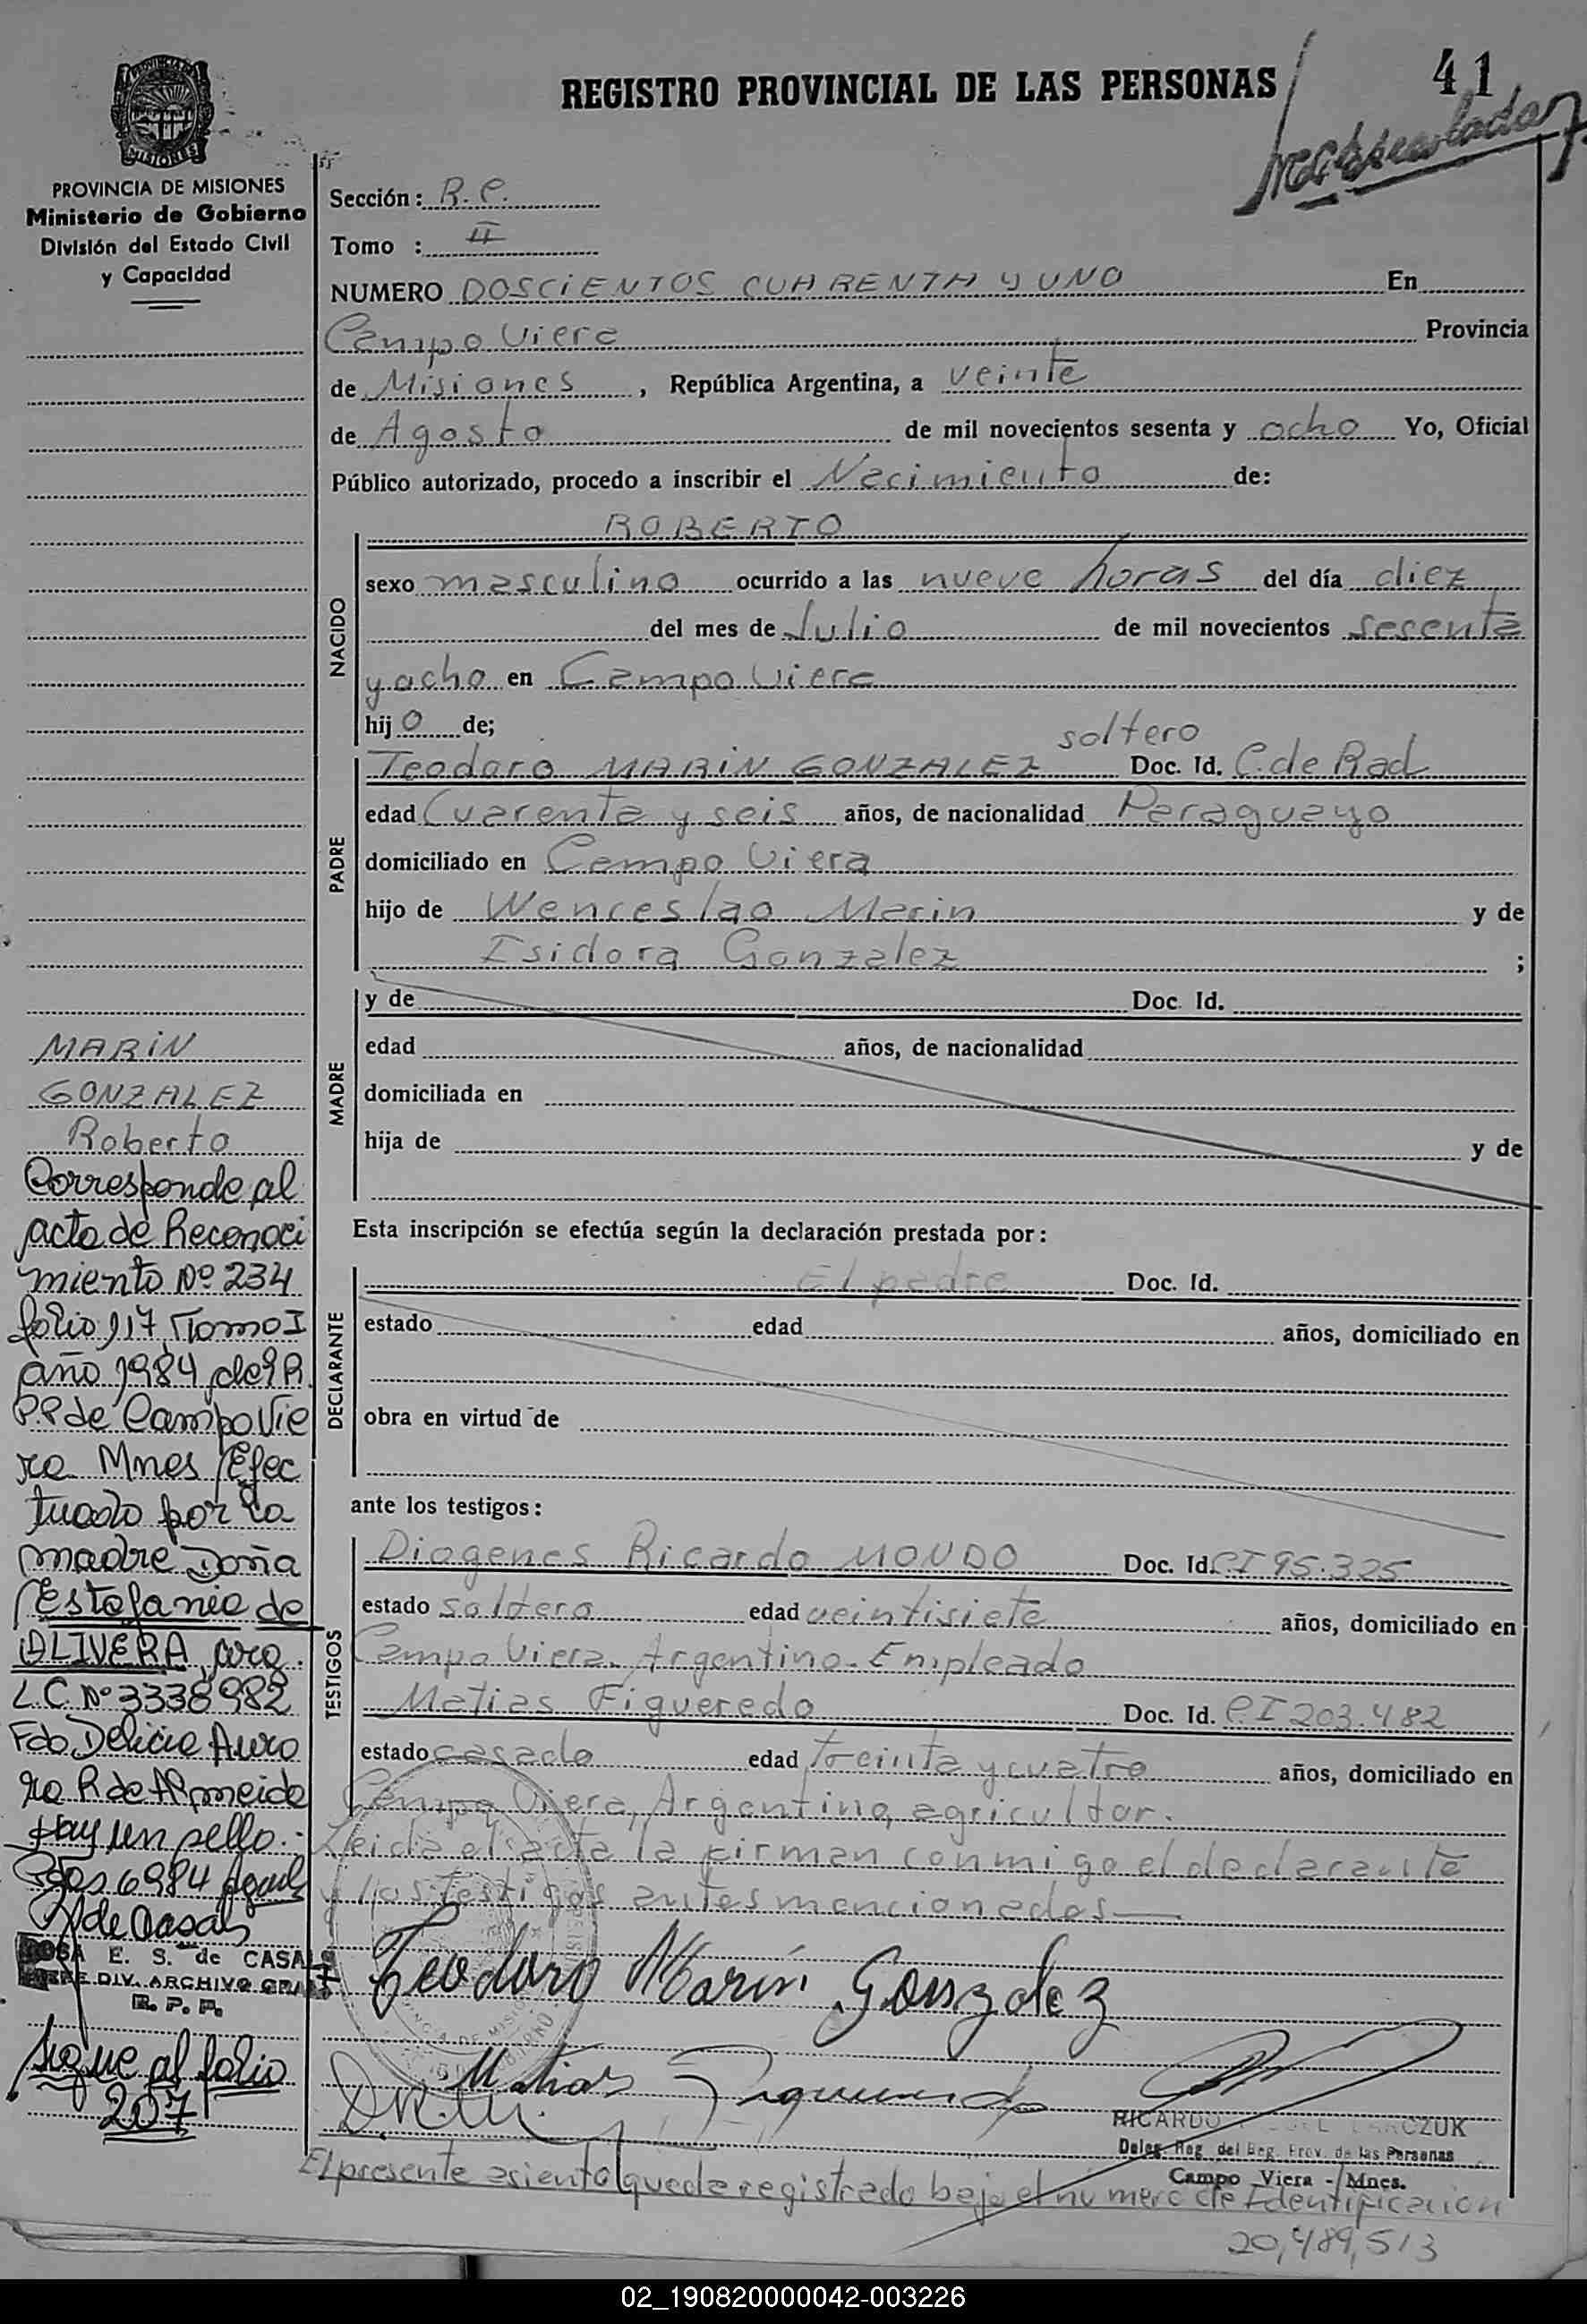 REGISTRO PROVINCIAL DE LAS PERSONAS
41
PROVINCIA DE MISIONES
Ministerio de Gobierno
División del Estado Civil
y Capacidad
Sección: R.C.
Tomo : II
NUMERO DOSCIENTOS CUARENTA y UNO En
Campo Viera Provincia
de Misiones, República Argentina, a veinte
de Agosto de mil novecientos sesenta y ocho Yo, Oficial
Público autorizado, procedo a inscribir el Nacimiento de:
NACIDO
ROBERTO
sexo masculino ocurrido a las nueve horas del día diez
del mes de Julio de mil novecientos sesenta
y ocho en Campo Viera
hijo de;
soltero
PADRE
Teodoro MARIN GONZALEZ Doc. Id. C. de Rad
edad Cuarenta y seis años, de nacionalidad Paraguayo
domiciliado en Campo Viera
hijo de Wenceslao Marin y de
Isidora Gonzalez ;
MADRE
y de Doc. Id.
edad años, de nacionalidad
domiciliada en
hija de y de
Esta inscripción se efectúa según la declaración prestada por:
DECLARANTE
El padre Doc. Id.
estado edad años, domiciliado en
obra en virtud de
ante los testigos:
TESTIGOS
Diogenes Ricardo MONDO Doc. Id. CI 95.325
estado soltero edad veintisiete años, domiciliado en
Campo Viera. Argentino. Empleado
Matias Figueredo Doc. Id. CI 203.482
estado casado edad treinta y cuatro años, domiciliado en
Campo Viera, Argentino, agricultor.
Leida el acta la firman conmigo el declarante
y los testigos antes mencionados
Teodoro Marín Gonzalez
Matias Figueredo
RICARDO CZUK
Deleg. Reg. del Reg. Prov. de las Personas
Campo Viera - Mnes.
El presente asiento queda registrado bajo el numero de Identificacion
20,489,513
MARIN
GONZALEZ
Roberto
Corresponde al
acta de Reconoci
miento Nº 234
folio 117 Tomo I
año 1984 del R.
P.P de Campo Vie
ra Mnes Efec
tuado por la
madre Doña
Estefania de
OLIVERA, arg.
L.C. Nº 3338982
Fdo Delicia Auro
ra R de Almeida
Hay un sello.-
Pdas 6984
de Casals
ROSA E. S. de CASALS
JEFE DIV. ARCHIVO GRAL
R. P. P.
sigue al folio
207
02_190820000042-003226